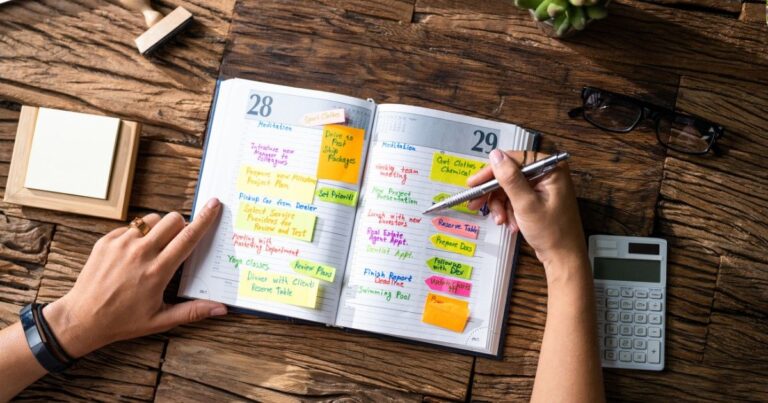 28
Sport Clothes
Meditation
Drive to
Post
Ship
Packages
Introduce new
Manager to
Colleagues
Prepare new
Project Plan
Set Priority
Pickup Car from Dealer
Select Service
Providers for
Review and Test
Meeting with
Marketing Department
Yoga Classes
Review Plans
Dinner with Client
Reserve Table
29
Meditation
Get Clothes
Chemical
Weekly team
meeting
New Project
Presentation
Lunch with new
investors
Reserve Table
Real Estate
Agent Appt.
Prepare Docs
Dentist Appt.
Follow up
with Dev
Finish Report
Deadline
Swimming Pool